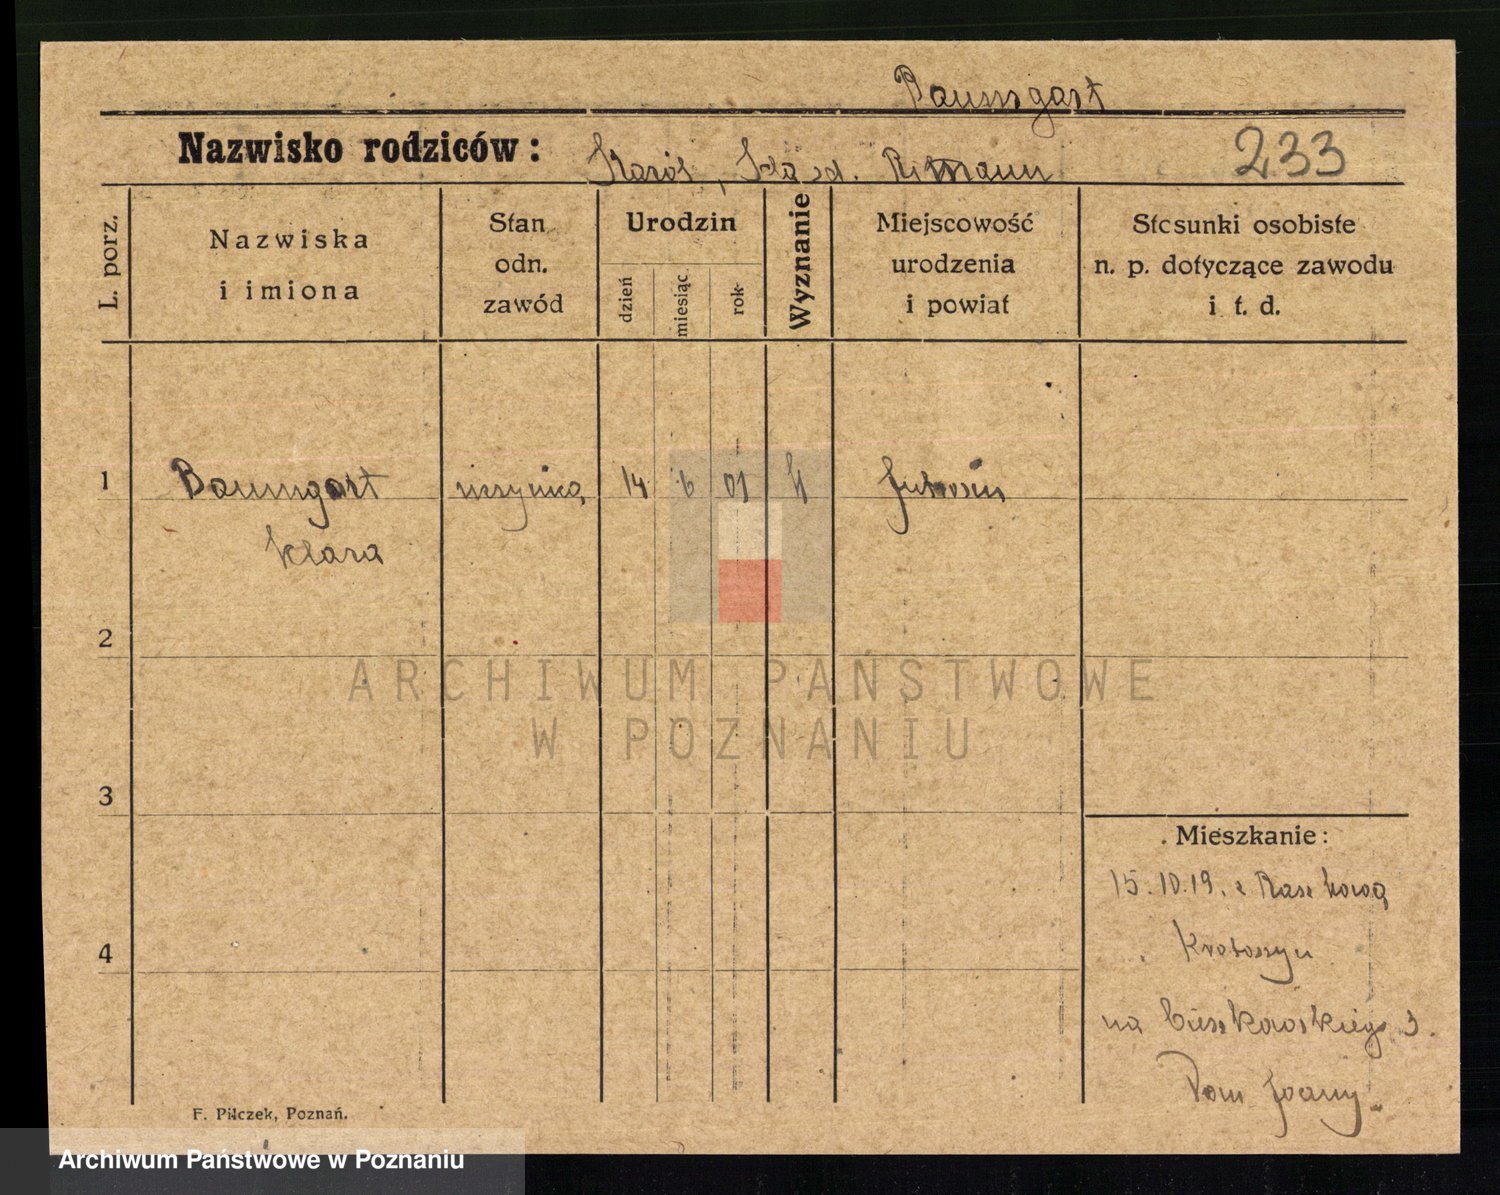 Baumgart
Nazwisko rodziców: Karól, Ida zd. Remann
233
L. porz.
Nazwiska
i imiona
Stan
odn.
zawód
Urodzin
dzień
miesiąc
rok
Wyznanie
Miejscowość
urodzenia
i powiat
Stosunki osobiste
n. p. dotyczące zawodu
i t. d.
1 Baumgart 14 6 01 Jutrosin
Klara
2
ARCHIWUM PAŃSTWOWE
W POZNANIU
3
4
Mieszkanie:
15.10.19. z Raszkową
Krotoszyn
na Cieszkowskiego 3.
Dom
F. Pilczek, Poznań.
Archiwum Państwowe w Poznaniu